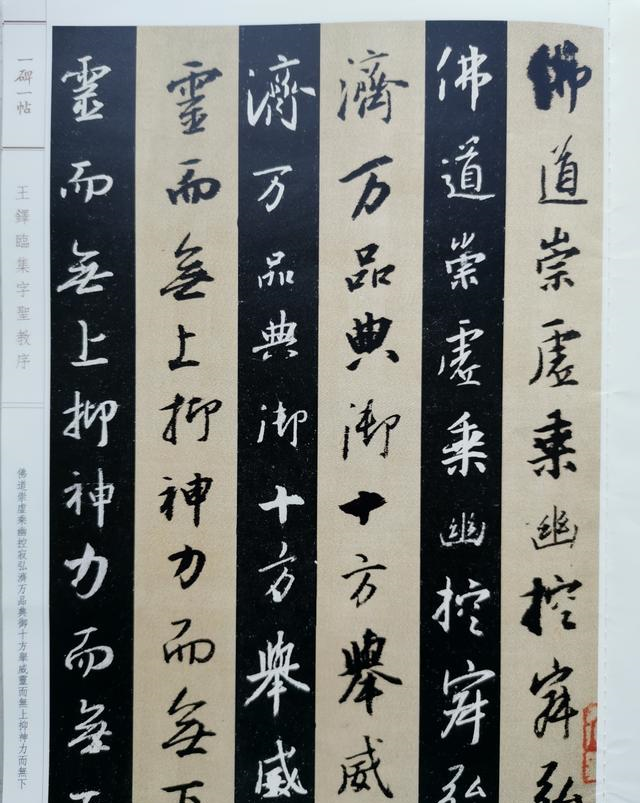 佛道崇虚乘幽控寂弘
佛道崇虚乘幽控寂弘
濟万品典御十方舉威
濟万品典御十方舉威
靈而無上抑神力而無下
靈而無上抑神力而無下
一碑一帖
王鐸臨集字聖教序
佛道崇虚乘幽控寂弘濟万品典御十方舉威靈而無上抑神力而無下